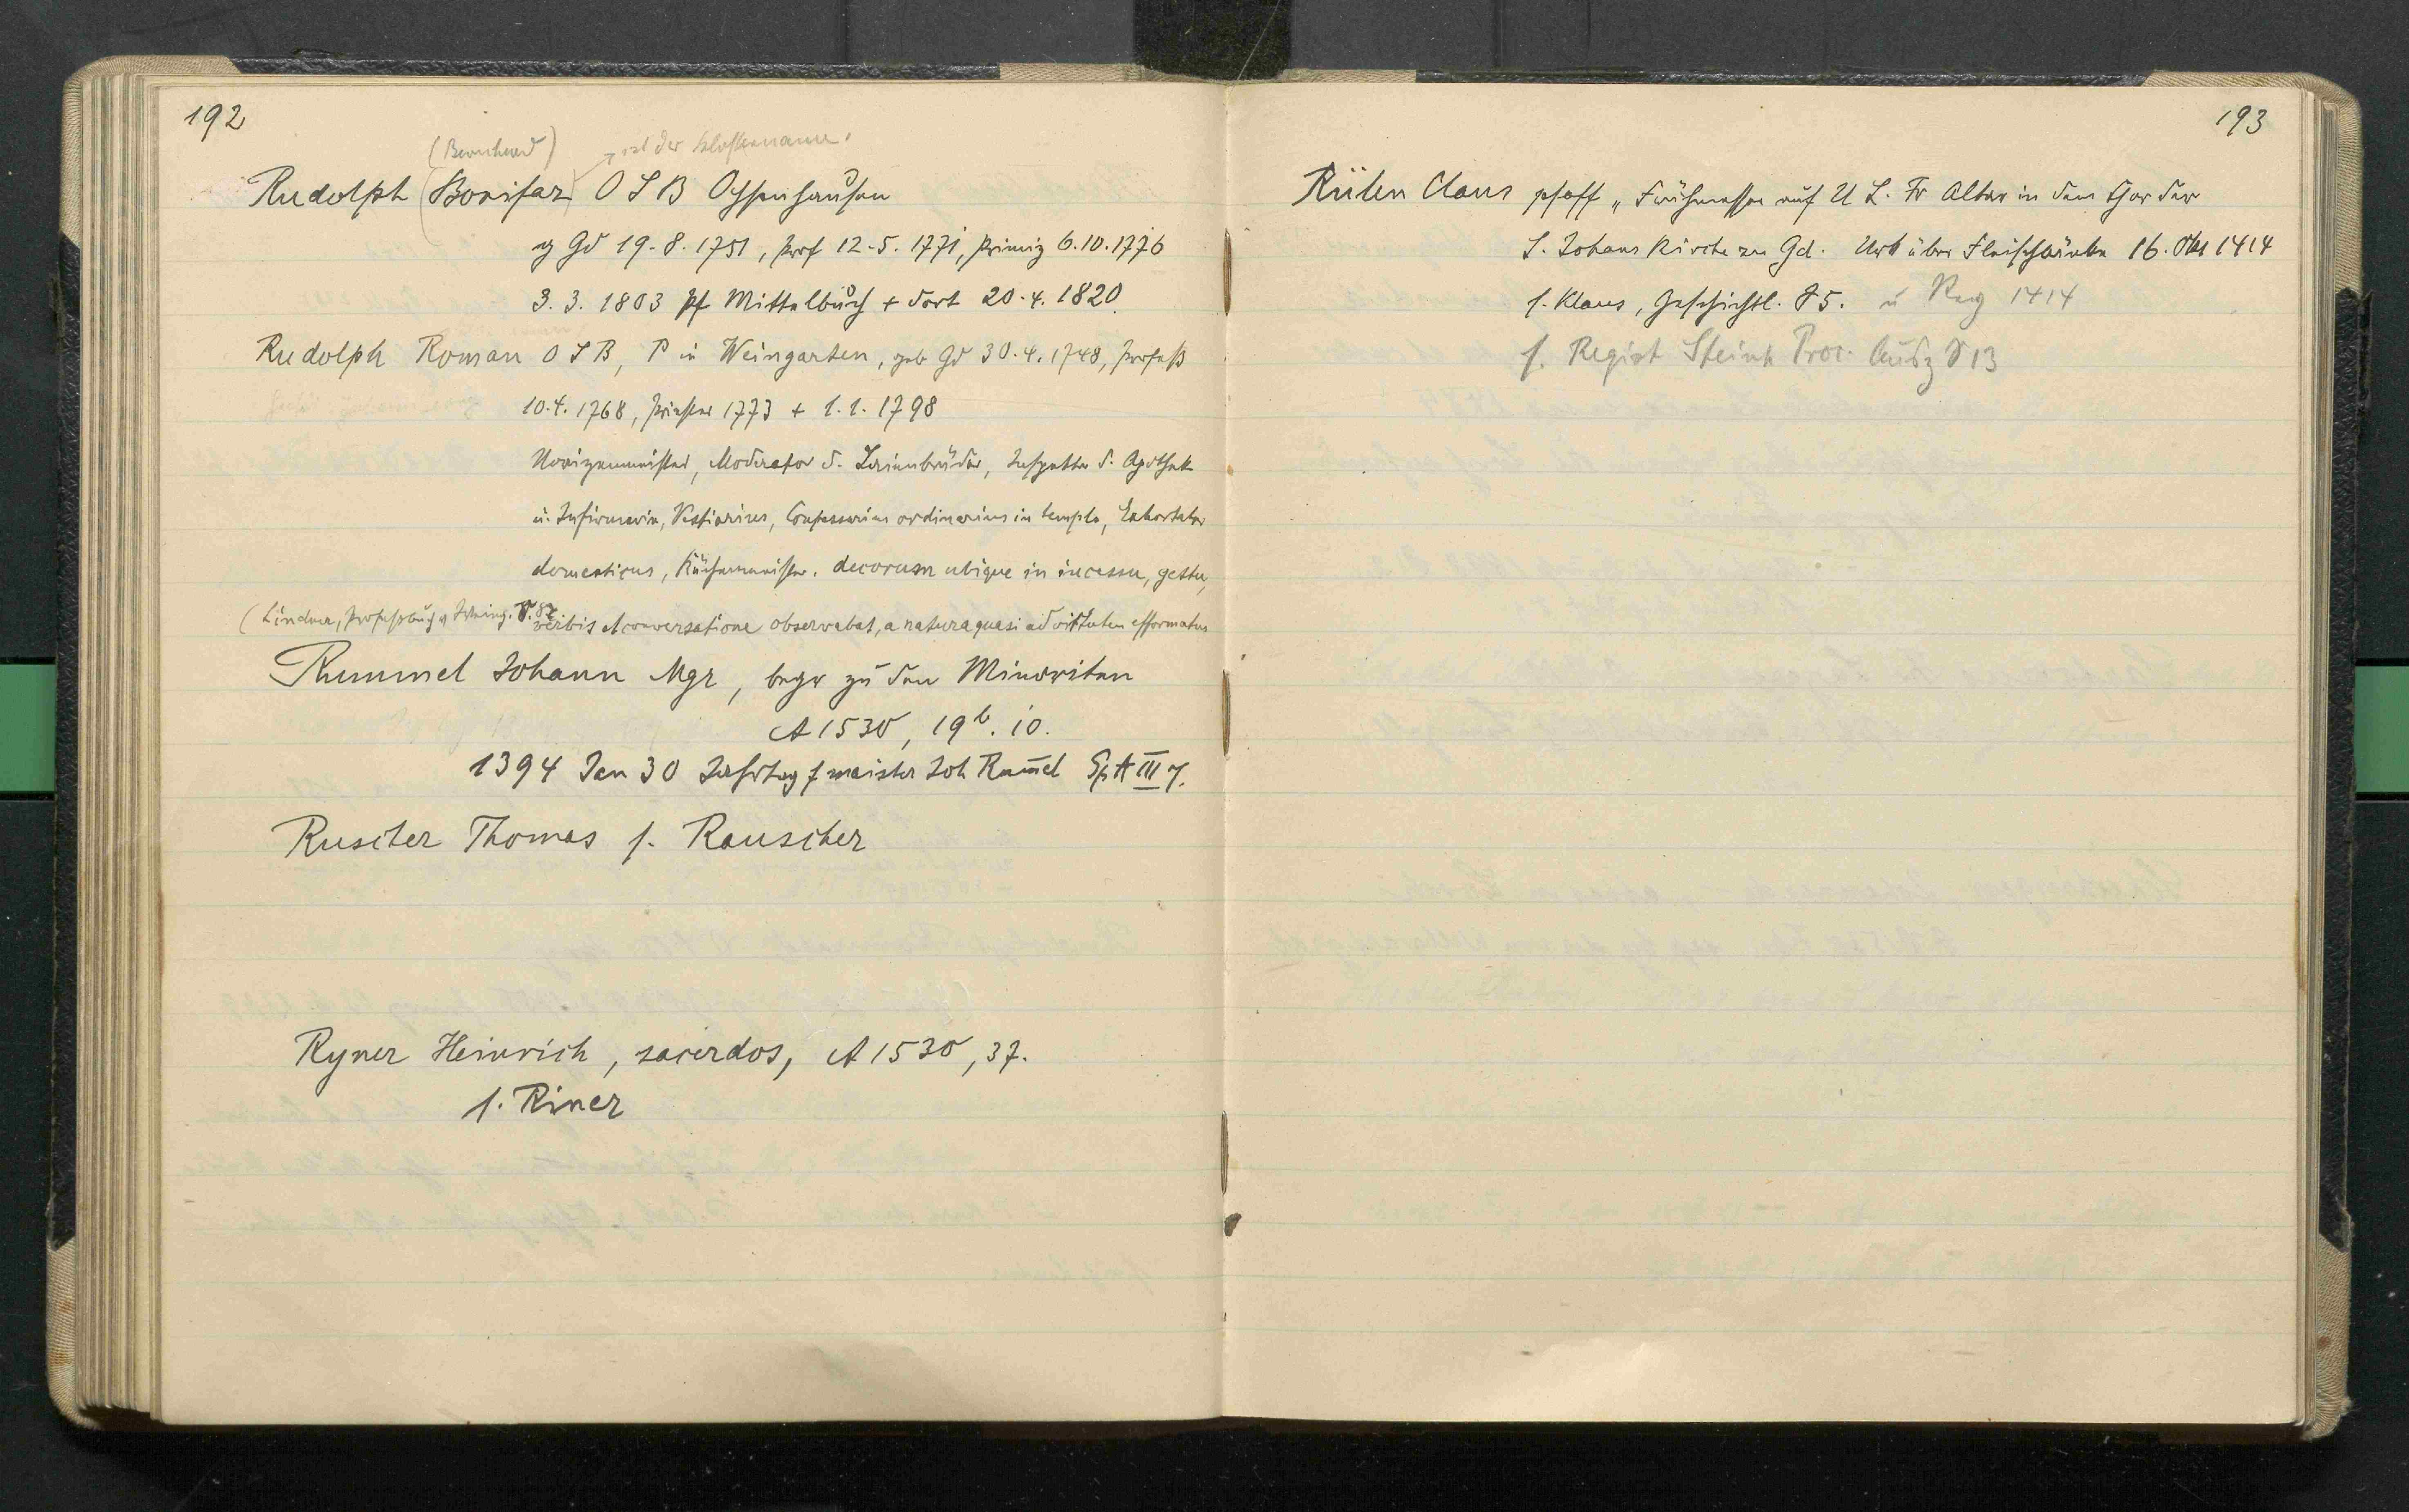 192
(Bernhard) ist der Klostername.
Rudolph (Bonifaz) O S B Ochsenhausen
Gd 19. 8. 1751, Prof 12. 5. 1771, Primiz 6. 10. 1776
3. 3. 1803 Pf Mittelbuch + dort 20. 4. 1820.
Rudolph Roman O S B, P in Weingarten, geb Gd 30. 4. 1748, Profeß
10. 4. 1768, Priester 1773 + 1. 1. 1798
Novizenmeister, Moderator d. Laienbrüder, Inspektor d. Apothek
u. Infirmarie, Vestiarius, Confessarius ordinarius in templo, Exhortator
domesticus, Küchenmeister. decorum ubique in incessu, gestu,
(Lindner, Professbuch v Weing. S. 82 verbis et conversatione observabat, a natura quasi ad virtutem efformatus
Rummel Johann Mgr, begr zu den Minoriten
A 1530, 19b. 10.
1394 Jan 30 Jahrtag f meister Joh Rum̄el Sp A III 7.
Ruscher Thomas s. Rauscher
Ryner Heinrich, sacerdos, A 1530, 37.
s. Riner
193
Rülen Claus pfaff „ Frühmesser auf U L. Fr Altar in dem Chor der
S. Johans Kirche zu Gd. Urk über Fleischbänke 16. Okt 1414
s. Klaus, Geschichtl. S 5. u Reg 1414
s. Regist Steinh Proc. Ausz S 13